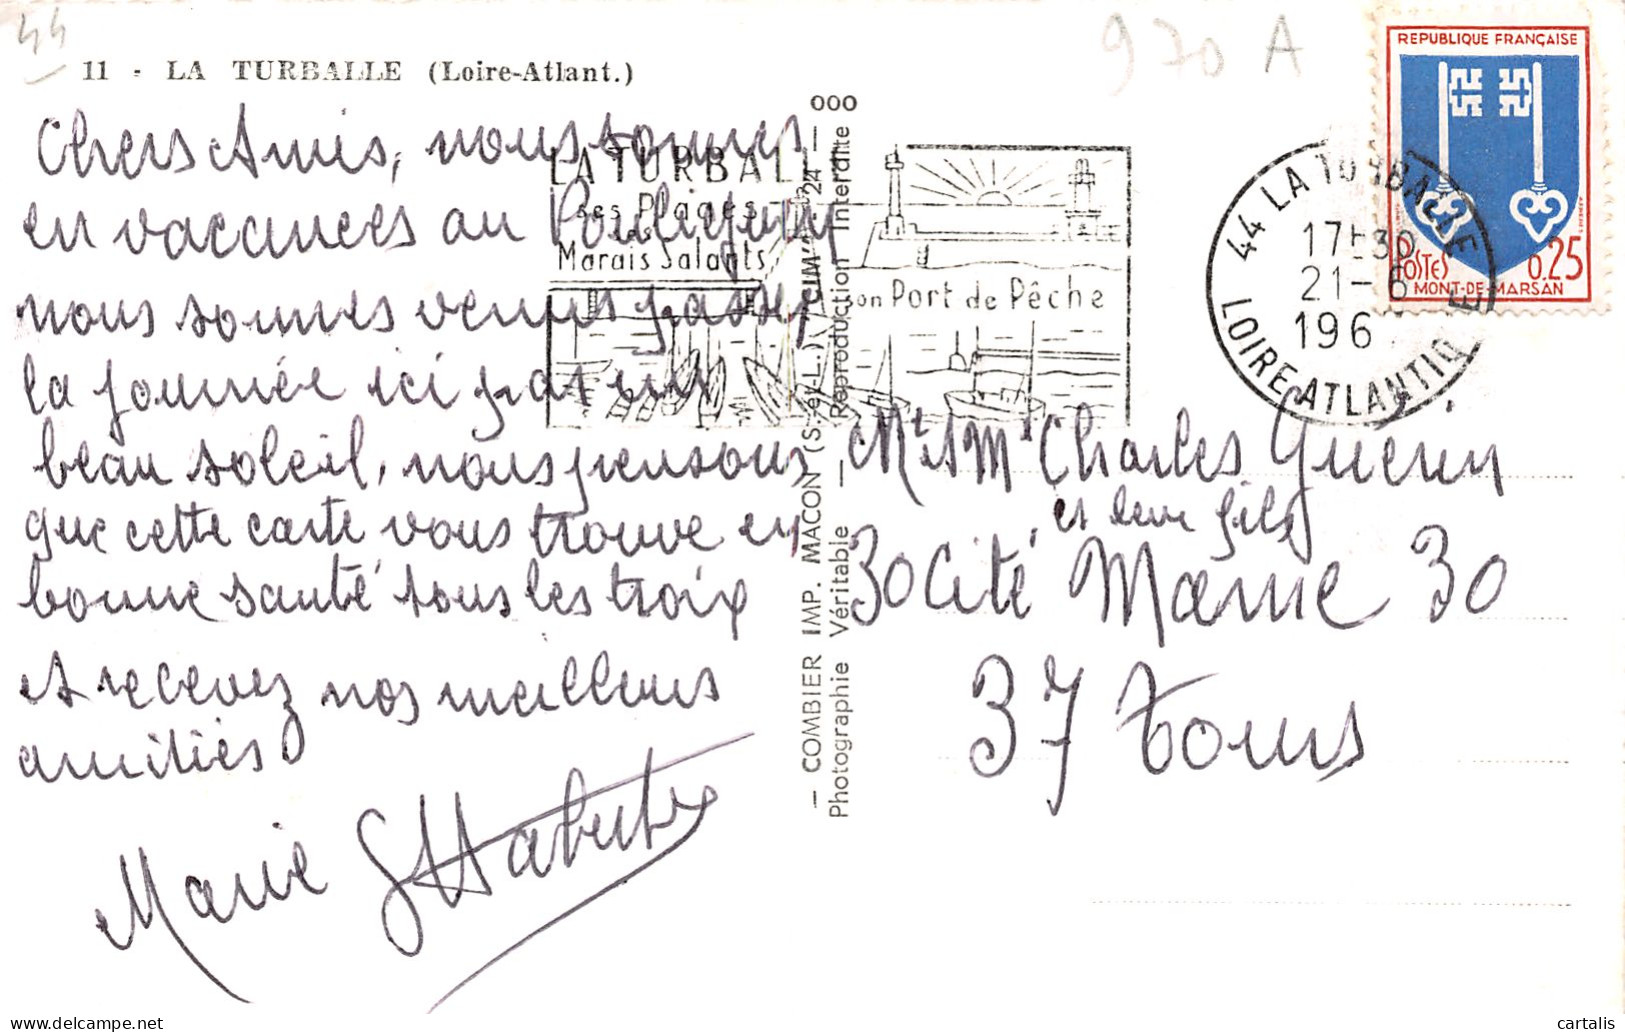 44
970 A
11 - LA TURBALLE (Loire-Atlant.)
Chers Amis, nous sommes
en vacances au Pouliguen
nous sommes venus passer
la journée ici par un
beau soleil, nous pensons
que cette carte vous trouve en
bonne santé tous les trois
et recevez nos meilleurs
amitiés
Marie
LA TURBALL
ses Plages
Marais Salants
son Port de Pêche
000
— COMBIER IMP. MACON (S.-et-L.) "CIM" 24 —
Photographie Véritable — Reproduction Interdite
REPUBLIQUE FRANÇAISE
POSTES 0,25
MONT-DE-MARSAN
44 LA TURBALLE
17H30
21-6
196
LOIRE-ATLANTIQUE
Mr & Mme Charles Guérin
et leur fils
30 Cité Marne 30
37 Tours
cartalis.com